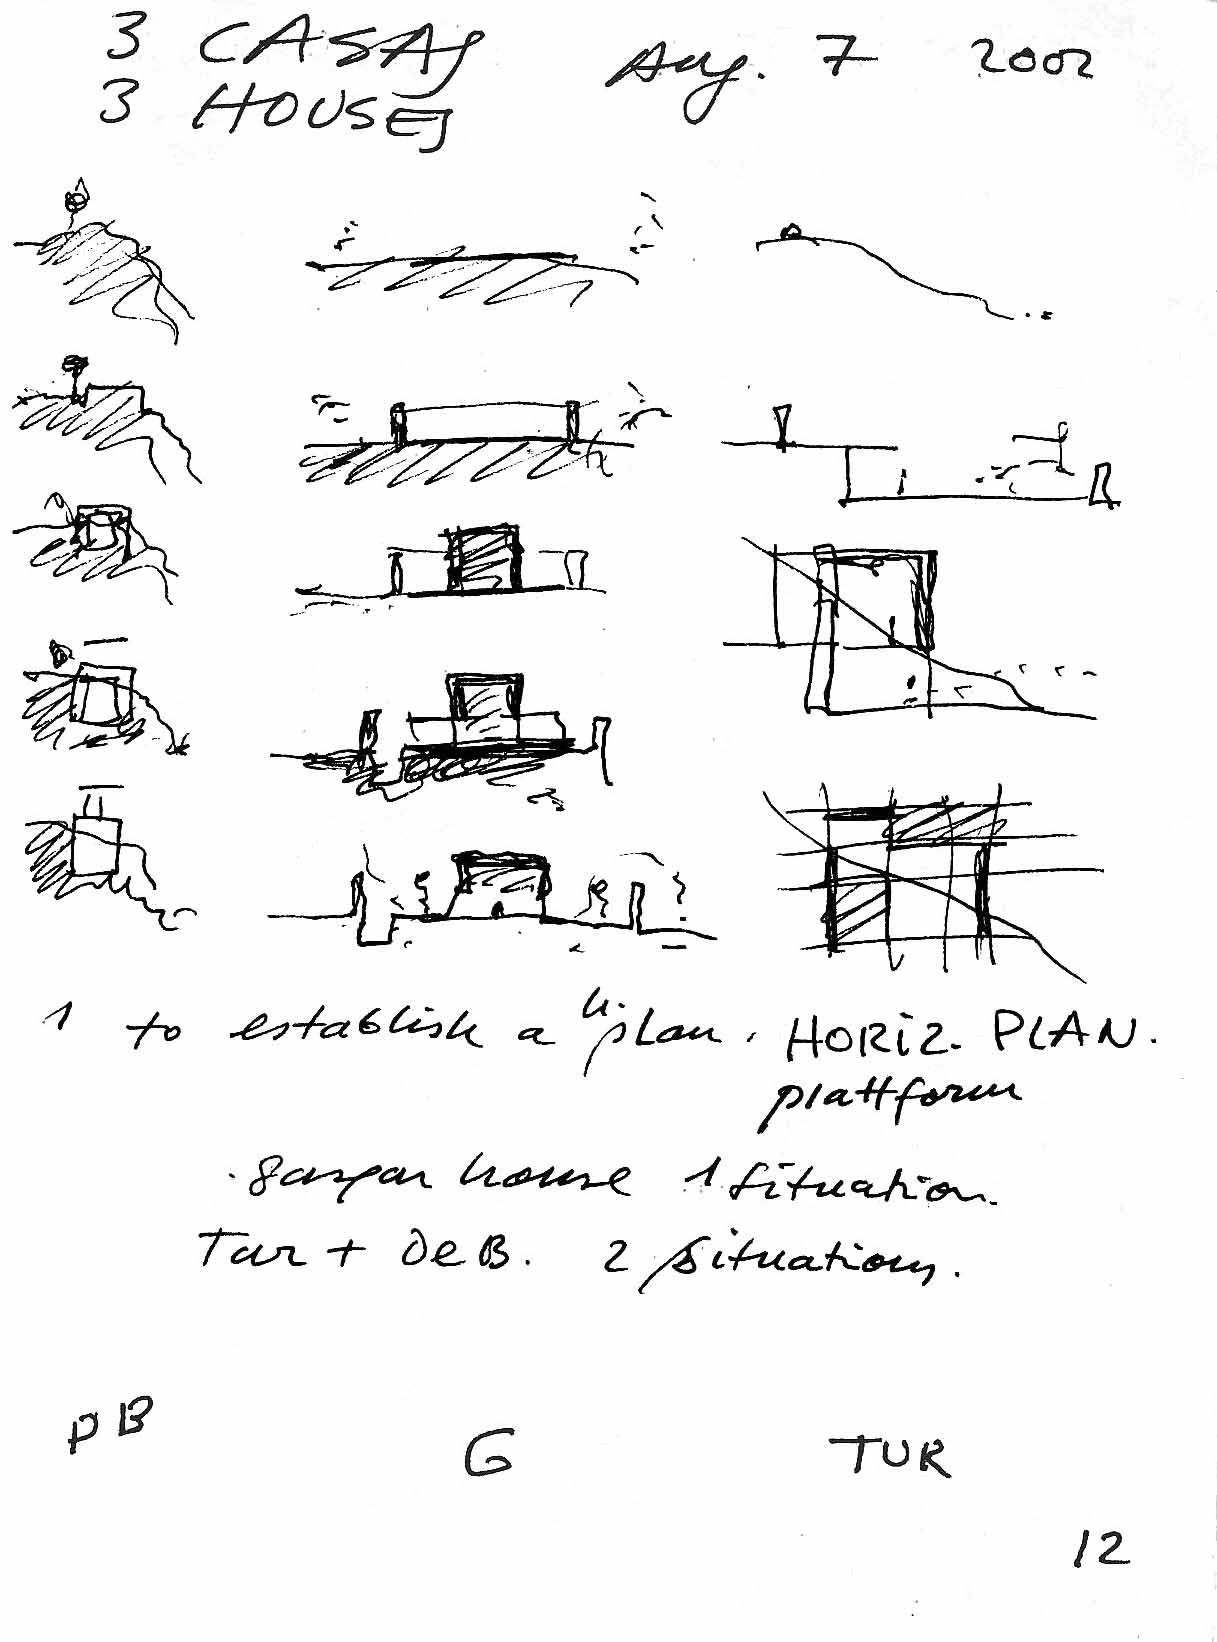 3 CASAS Aug. 7 2002
3 HOUSES
1 to establish a h. plan. HORIZ. PLAN.
plattform
. gaspar house 1 situation.
Tur + De B. 2 situations.
DB
G
TUR
12